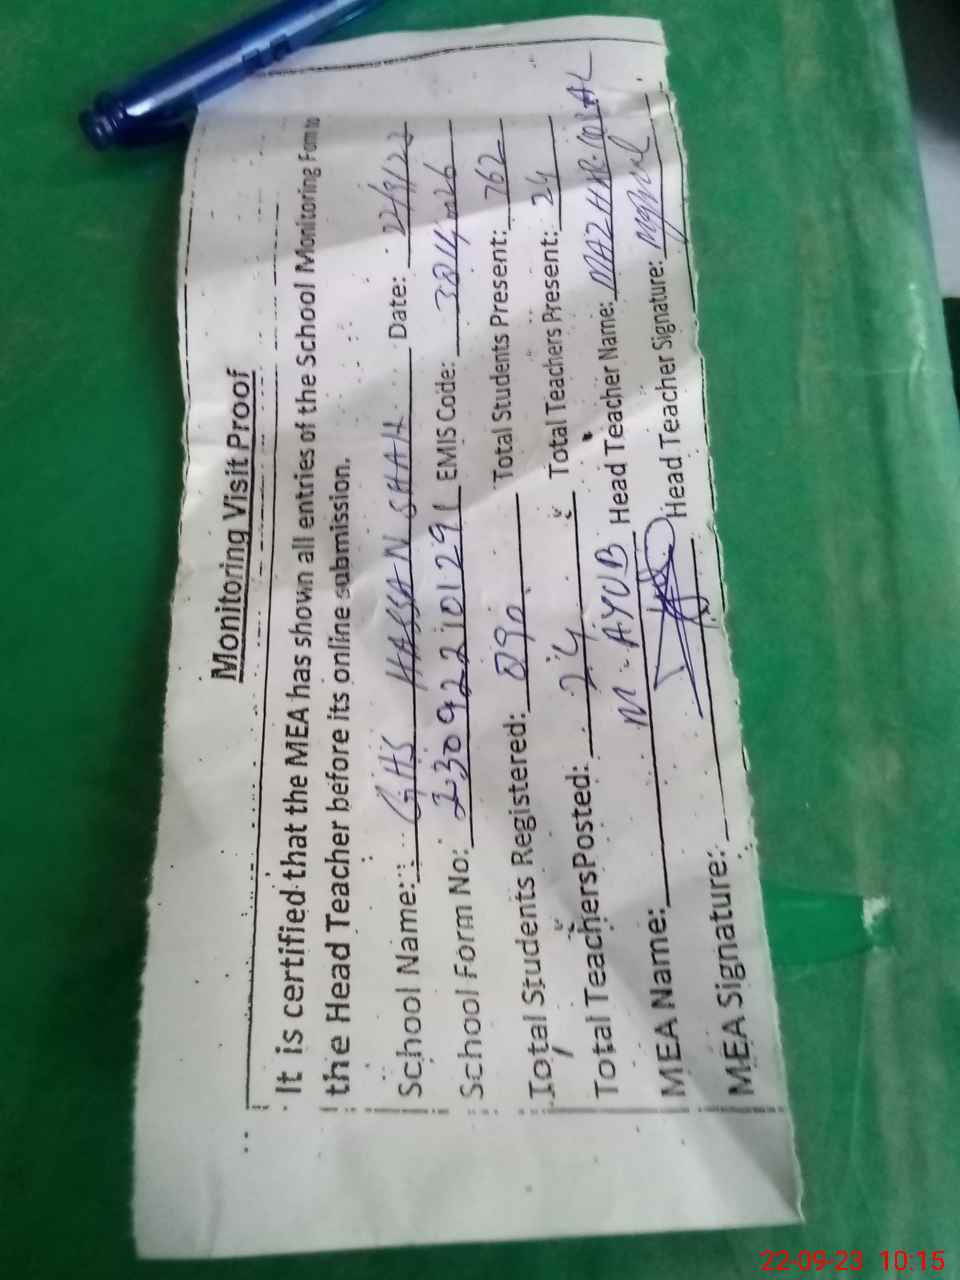 Monitoring Visit Proof
It is certified that the MEA has shown all entries of the School Monitoring Form to
the Head Teacher before its online submission.
School Name: GHS HASSAN SHAH Date: 22/9/23
School Form No: 230922101291 EMIS Code:
Total Students Registered: 890 Total Students Present: 762
Total TeachersPosted: 24 Total Teachers Present: 24
MEA Name: M. AYUB Head Teacher Name: MAZHAR
MEA Signature: Head Teacher Signature:
22-09-23 10:15